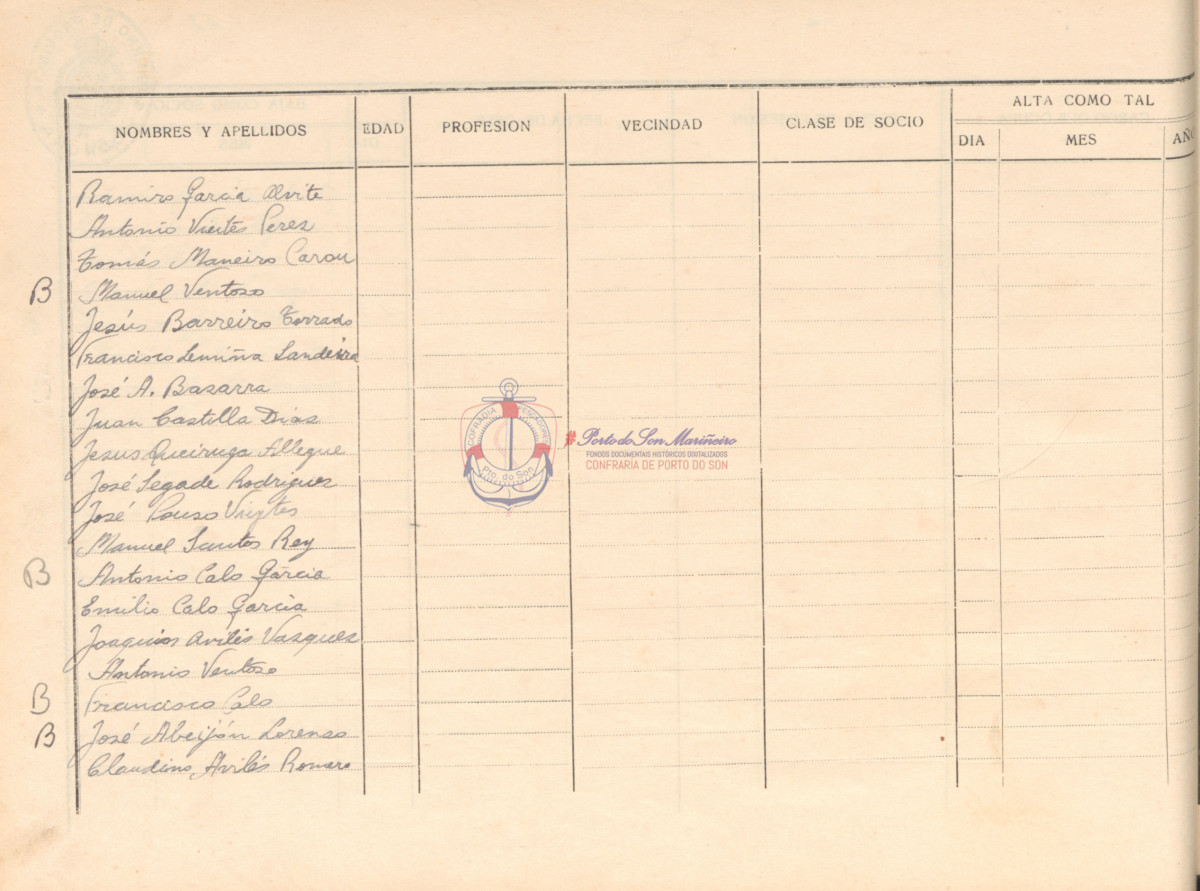 ALTA COMO TAL
NOMBRES Y APELLIDOS EDAD PROFESION VECINDAD CLASE DE SOCIO DIA MES AÑO
Ramiro Garcia Alvite
Antonio Vieites Perez
Tomás Maneiro Carou
B Manuel Ventoso
Jesús Barreiro Torrado
Francisco Lemiña Landeira
José A. Basarra
Juan Castella Dias
Jesus Queiruga Allegue
José Segade Rodriguez
José Pouso Vieytes
Manuel Santos Rey
B Antonio Calo Garcia
Emilio Calo Garcia
Joaquin Avilés Vasquez
Antonio Ventoso
B Francisco Calo
B José Abeijón Lorenzo
Claudino Avilés Romero
COFRADIA PESCADORES
Pto. do Son
#Porto do Son Mariñeiro
FONDOS DOCUMENTAIS HISTÓRICOS DIXITALIZADOS
CONFRARÍA DE PORTO DO SON